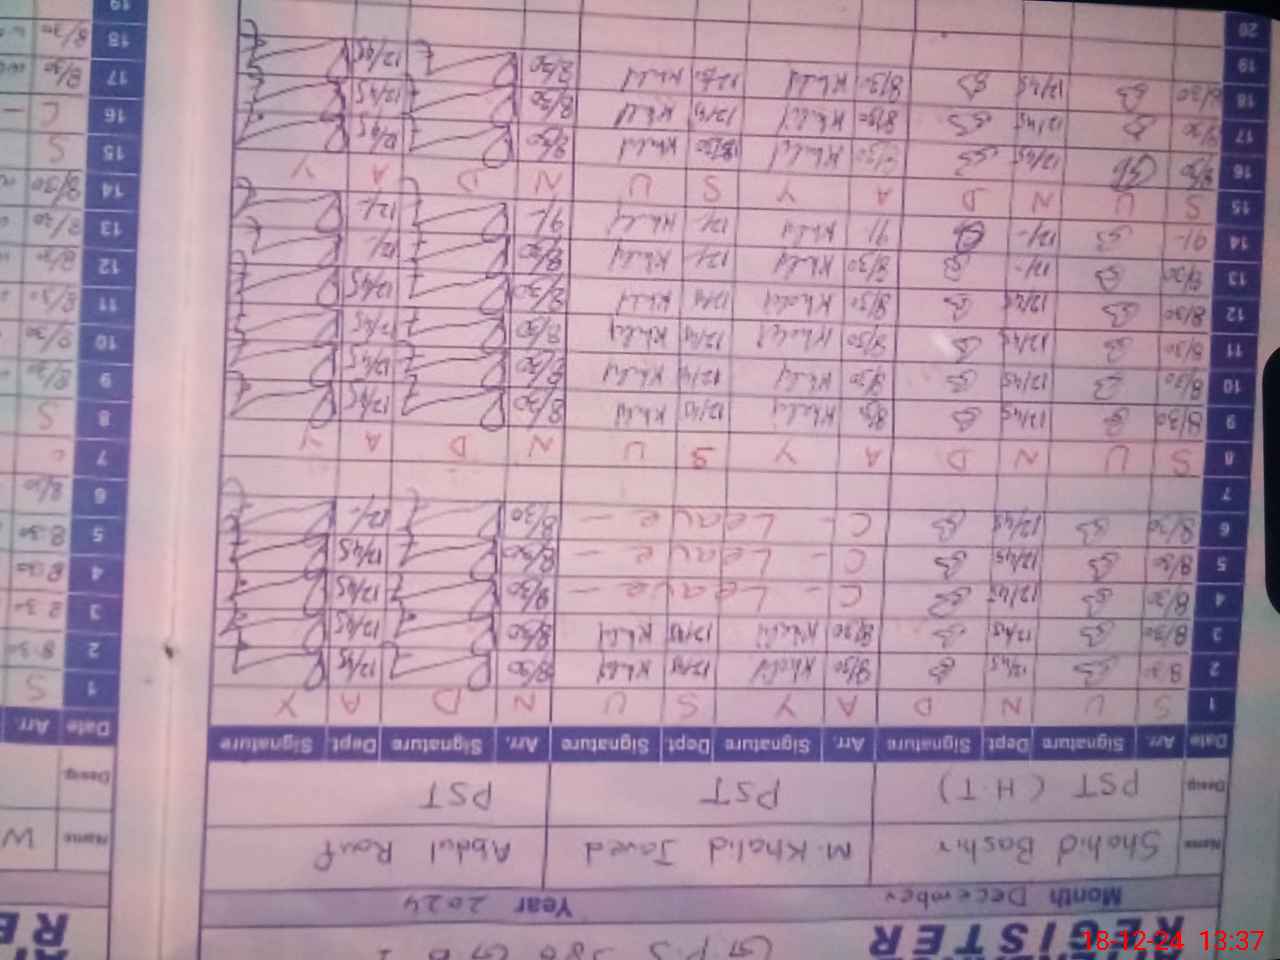 G.P.S 386 GB
REGISTER
Month December Year 2024
Name Shahid Bashir M. Khalid Javed Abdul Rauf
Desig. PST (H.T) PST PST
Date Arr. Signature Dept Signature Arr. Signature Dept Signature Arr. Signature Dept Signature
1 S U N D A Y S U N D A Y
2 8/30 12/45 8/30 Khalid 12/45 Khalid 8/30 12/45
3 8/30 12/45 8/30 Khalid 12/45 Khalid 8/30 12/45
4 8/30 12/45 C - Leave - 8/30 12/45
5 8/30 12/45 C - Leave - 8/30 12/45
6 8/30 12/45 C - Leave - 8/30 12/-
7
8 S U N D A Y S U N D A Y
9 8/30 12/45 8/30 Khalid 12/45 Khalid 8/30 12/45
10 8/30 12/45 8/30 Khalid 12/45 Khalid 8/30 12/45
11 8/30 12/45 8/30 Khalid 12/45 Khalid 8/30 12/45
12 8/30 12/45 8/30 Khalid 12/45 Khalid 8/30 12/45
13 8/30 12/- 8/30 Khalid 12/- Khalid 8/30 12/-
14 9/- 12/- 9/ Khalid 12/- Khalid 9/- 12/-
15 S U N D A Y S U N D A Y
16 8/30 12/45 8/30 Khalid Khalid 8/30 12/45
17 8/30 12/45 8/30 Khalid 12/45 Khalid 8/30 12/45
18 8/30 12/45 8/30 Khalid Khalid 8/30 12/45
19
20
RE
Name W
Desig.
Date Arr.
1 S
2 8:30
3
4 8:30
5 8:30
6 8/30
7
8 S
9 8/30
10 8/30
11 8/30
12 8/30
13 8/30
14 8/30
15 S
16 C -
17 8/30
18 8/30
19
18-12-24 13:37